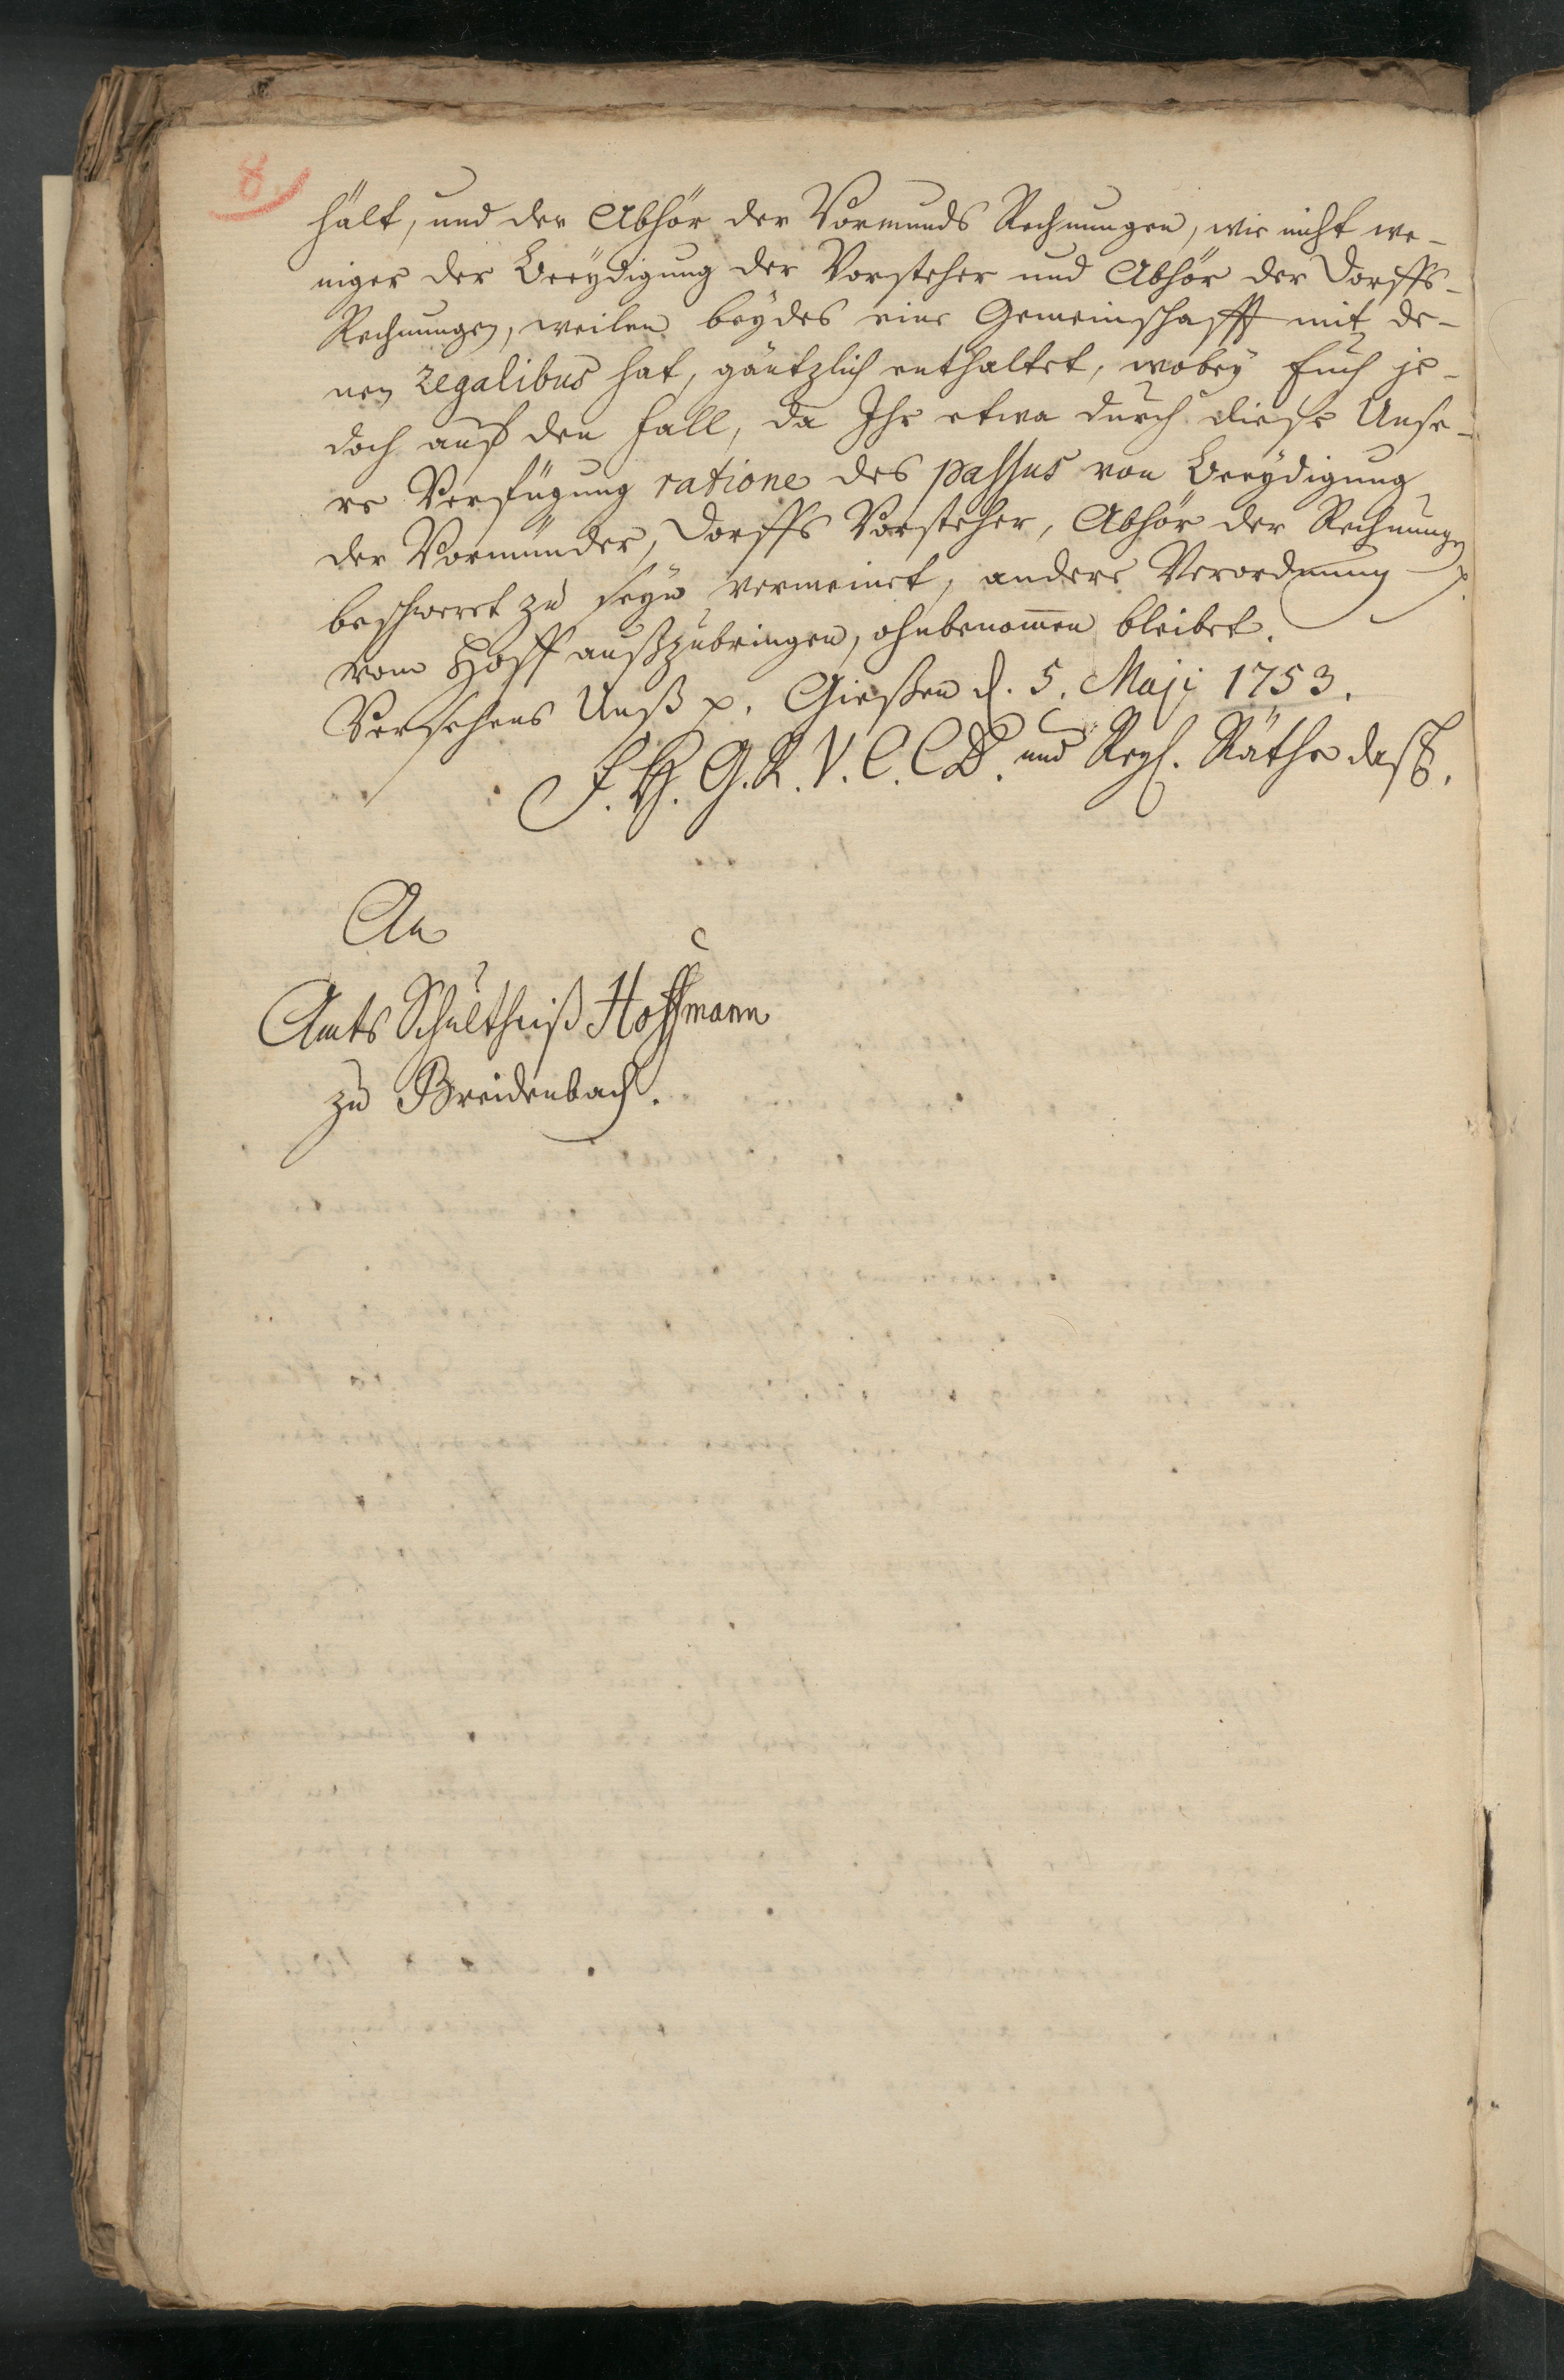 8.
hält, und der Abhör der Vormunds Rechnungen, wie nicht we-
niger der Beeydigung der Vorsteher und Abhör der Dorffs-
Rechnungen, weilen beydes eine Gemeinschafft mit de-
nen Regalibus hat, gäntzlich enthaltet, wobey Euch je-
doch auf den Fall, da Ihr etwa durch diese Unse-
re Verfügung ratione des passus von Beeydigung
der Vormünder, Dorffs Vorsteher, Abhör der Rechnungen
beschweret zu seyn vermeinet, andere Verordnung
vom Hoff außzubringen, ohnbenom̄en bleibet.
Versehens Unß p. Gießen d. 5. Maji 1753.
F. H. G. R. V. C. C. D. und Regs. Räthe das.
An
Amts Schultheiß Hoffmann
zu Breidenbach.